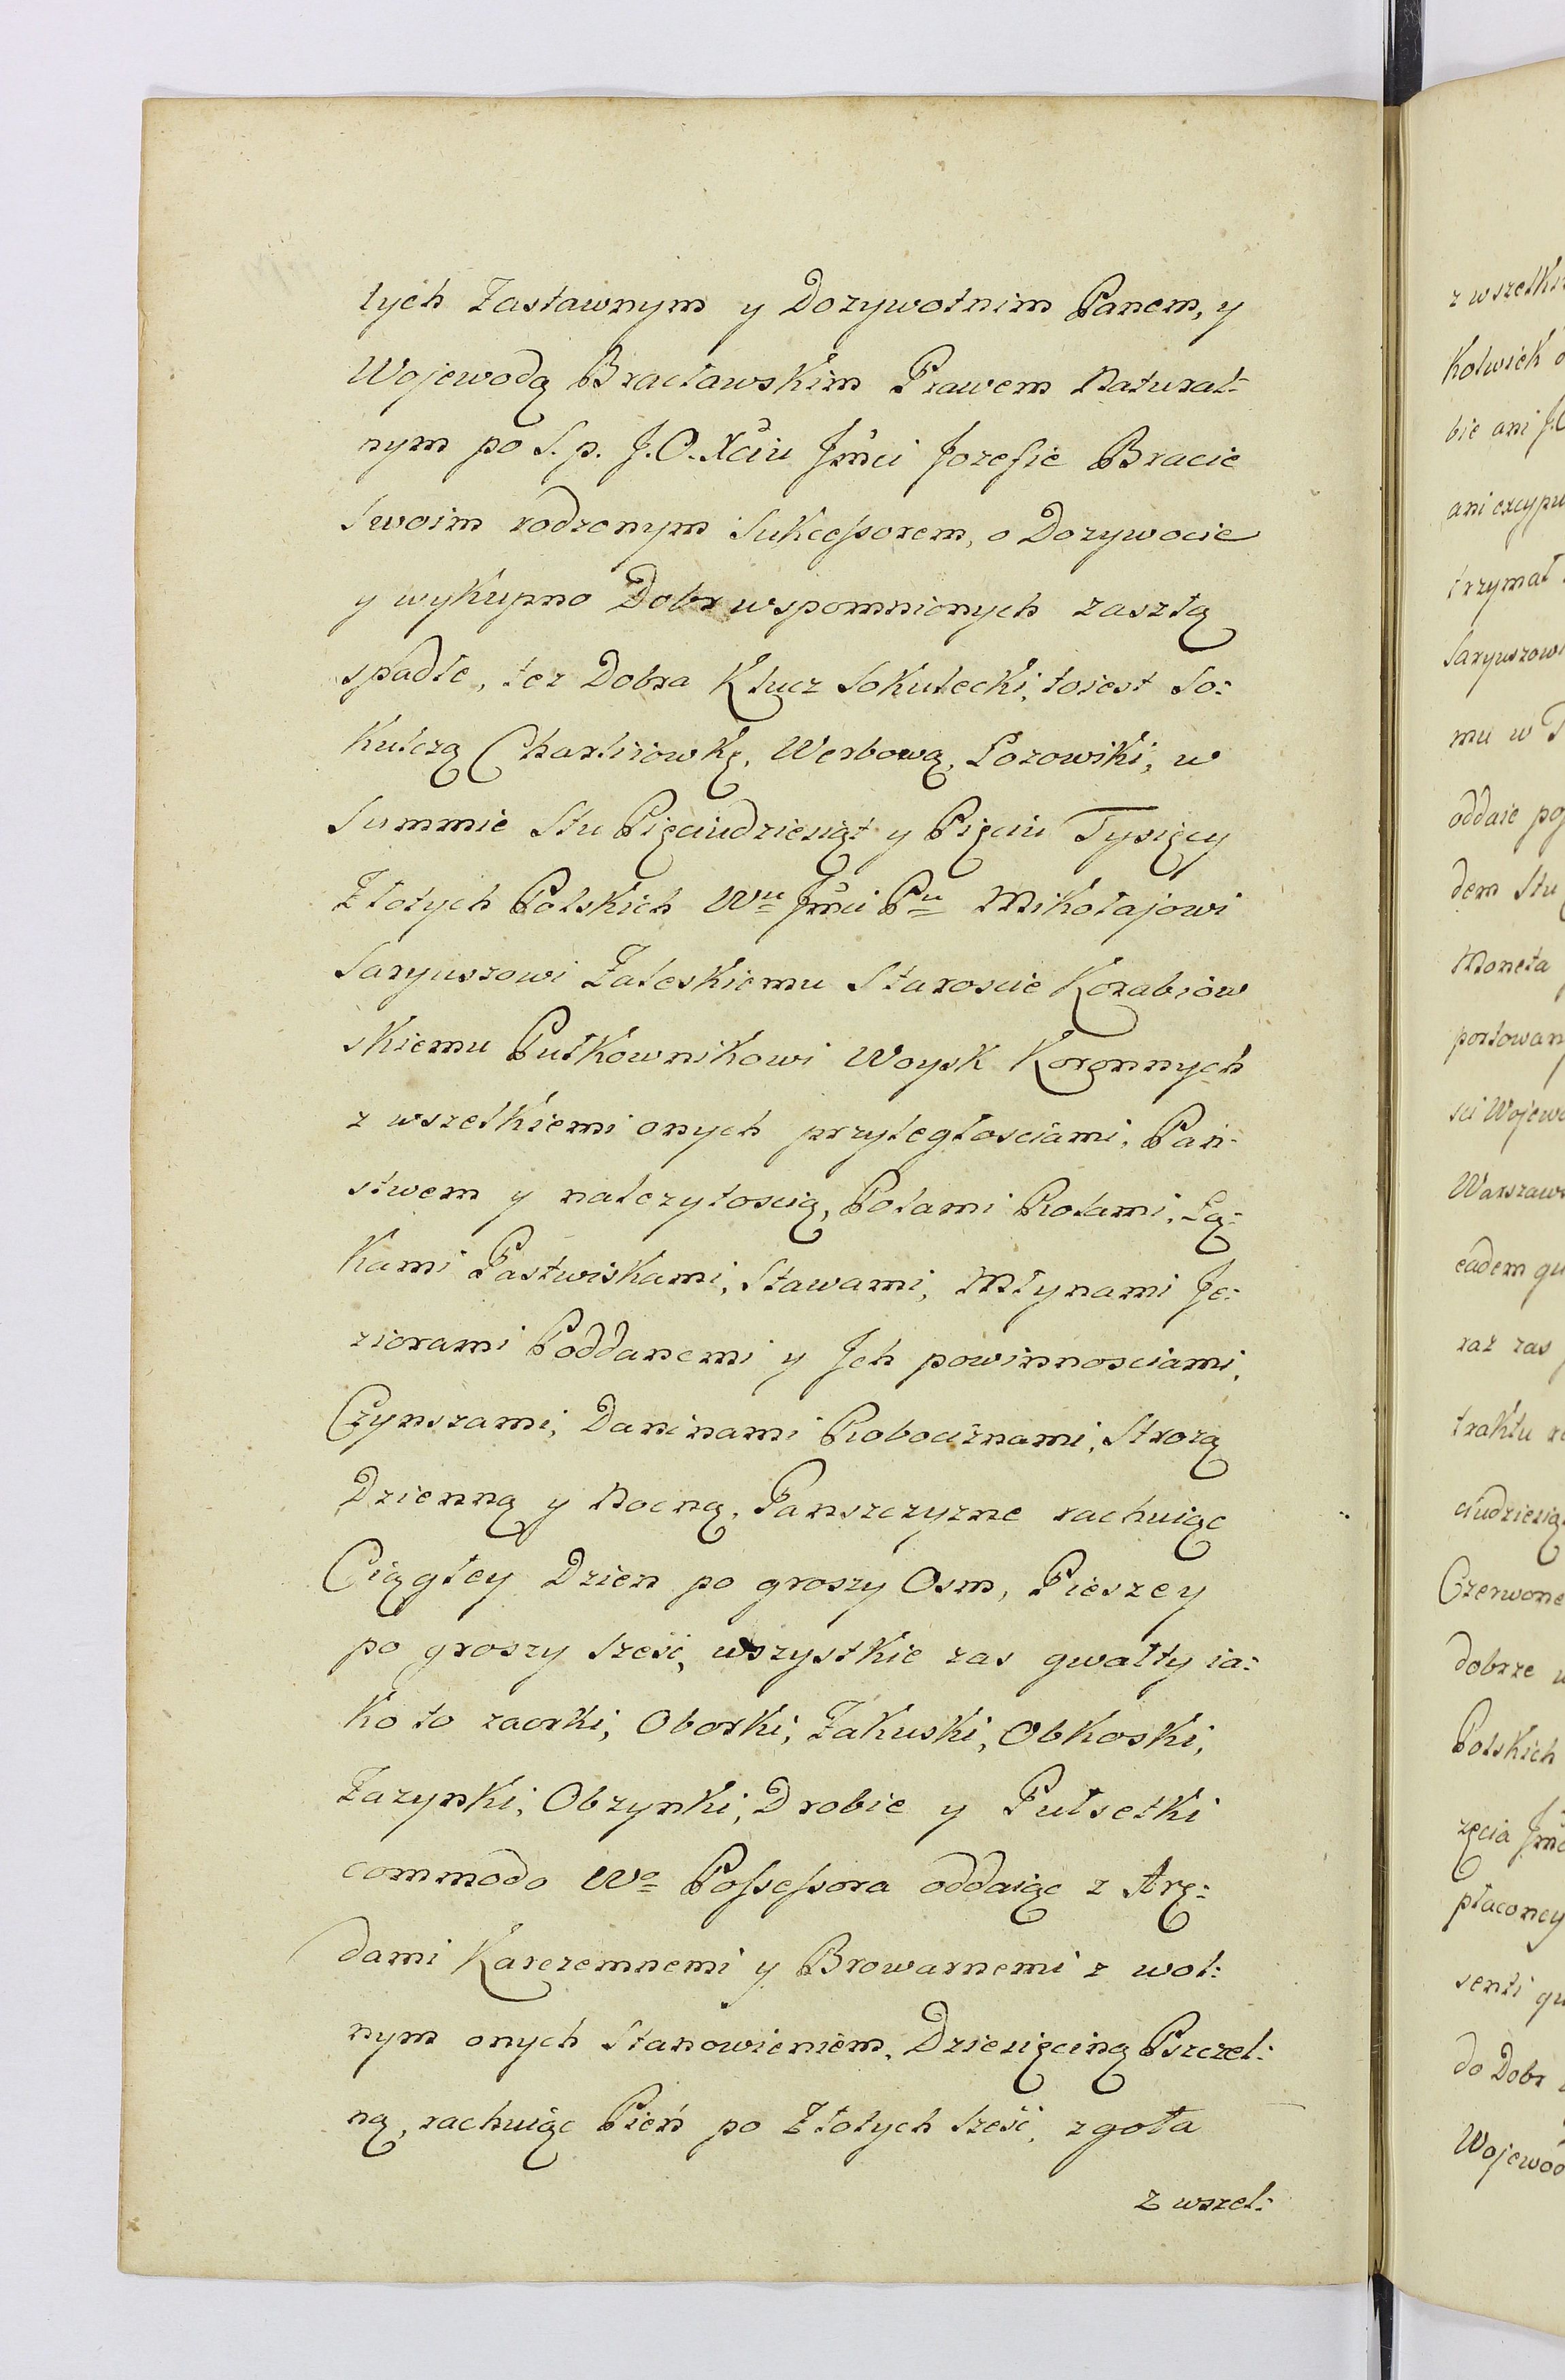 tych Zastawnym y Dozywotnim Panem, y
Wojewodą Bracławskim Prawem Natural:
nym po S. p. J. O. Xciu Jmci Jozefie Bracie
Swoim rodzonym Sukcessorem, o Dozywocie
y wykupno Dobr wspomnionych zaszłą
spadłe, tez Dobra Klucz Sokulecki, toiest So:
kulczą Charliiowkę, Werbową, Łozowiki, w
Summie Stu Pięciudziesiąt y Pięciu Tysięcy
Złotych Polskich Wu Jmci Pu Mikołajowi
Saryuszowi Zaleskiemu Staroscie Korabiow
skiemu Pułkownikowi Woysk Koronnych
z wszelkiemi onych przyległosciami, Pań:
stwem y należytoscią, Polami Rolami, Łą:
kami Pastwiskami, Stawami, Młynami Je:
ziorami Poddanemi y Jch powinnosciami,
Czynszami, Daninami Robociznami, Strozą
Dzienną y Nocną, Panszczyzne rachuiąc
Ciągłey Dzien po groszy Osm, Pieszey
po groszy Sześć, wszystkie zas gwałty ia:
ko to zaorki, Oborki, Zakuski, Obkoski,
Zazynki, Obzynki, Drobie y Pułsetki
commodo Wo Possessora oddaiąc z Arę:
dami Karczemnemi y Browarnemi z wol:
nym onych Stanowieniem, Dziesięciną Pszczel:
ną, rachuiąc Pień po Złotych Sześć, zgoła
z wszel:
z wszelki
kolwiek
bie ani J.O
ani excypu
trzymał
Saryuszowi
mu w
oddaie po
dem Stu
Moneta
portowan
sci Wojewo
Warszaws
eadem qu
raz zas
traktu
ciudziesiąt
Czerwone
dobrze
Polskich
zęcia Jmc
płaconey
senti qu
do Dobr
Wojewod